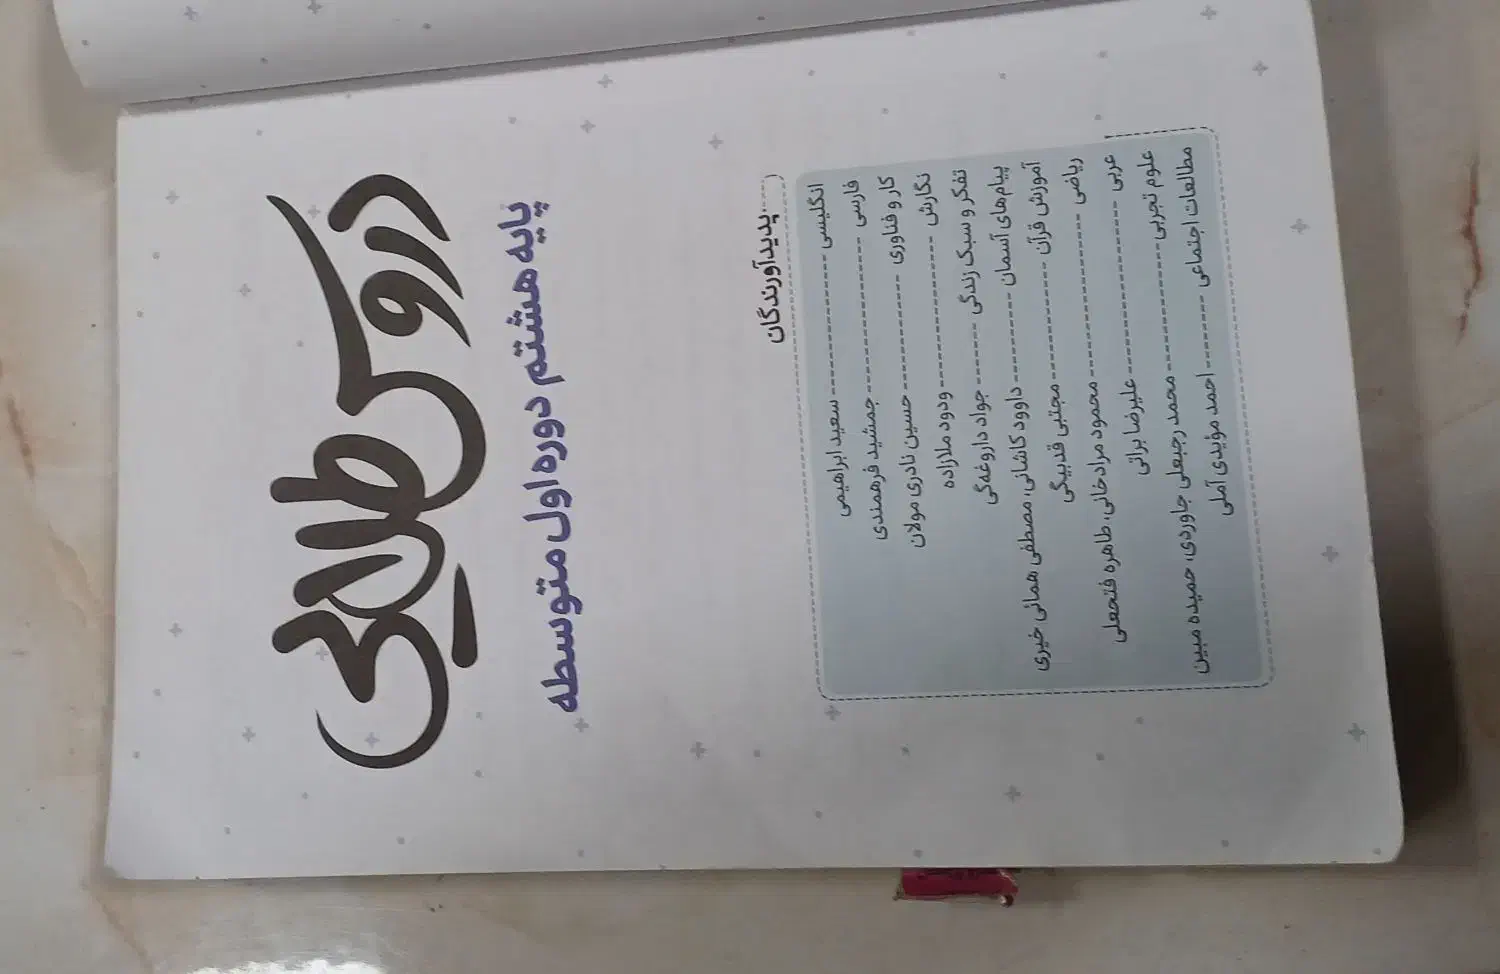 دروس طلایی
پایه هشتم دوره اول متوسطه
پدیدآورندگان
انگلیسی ---------------- سعید ابراهیمی
فارسی ---------------- جمشید فرهمندی
کار و فناوری ------------ حسین نادری مولان
نگارش ---------------- ودود ملازاده
تفکر و سبک زندگی ------- جواد داروغه‌گی
پیام‌های آسمان --------- داوود کاشانی، مصطفی همائی خیری
آموزش قرآن ------------ مجتبی قدبیگی
ریاضی ---------------- محمود مرادخانی، طاهره فتحعلی
عربی ---------------- علیرضا براتی
علوم تجربی ------------ محمد رجبعلی جاوردی، حمیده مبین
مطالعات اجتماعی -------- احمد مؤیدی آملی